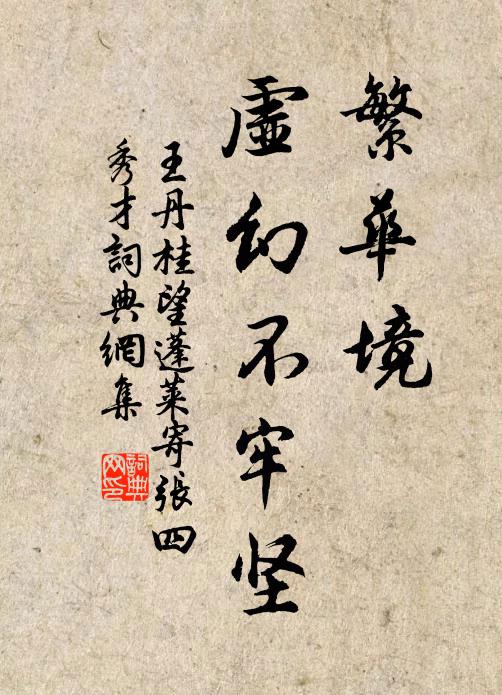 繁華境
虛幻不牢坚
王丹桂望蓬萊寄張四
秀才詞典網集
詞典
网印